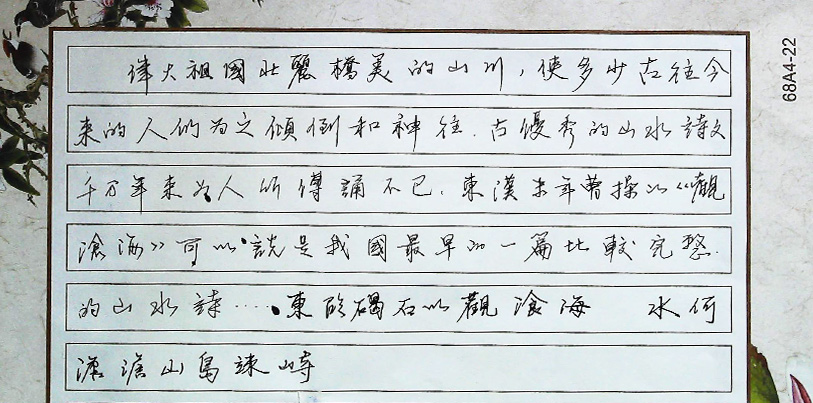 偉大祖國壯麗橋美的山川，使多少古往今
来的人们为之傾倒和神往．古優秀的山水詩文
千万年来为人所傳誦不已．東漢末年曹操的《觀
滄海》可以説是我國最早的一篇比較完整．
的山水詩……東臨碣石以觀滄海 水何
澹澹山島竦峙
68A4-22